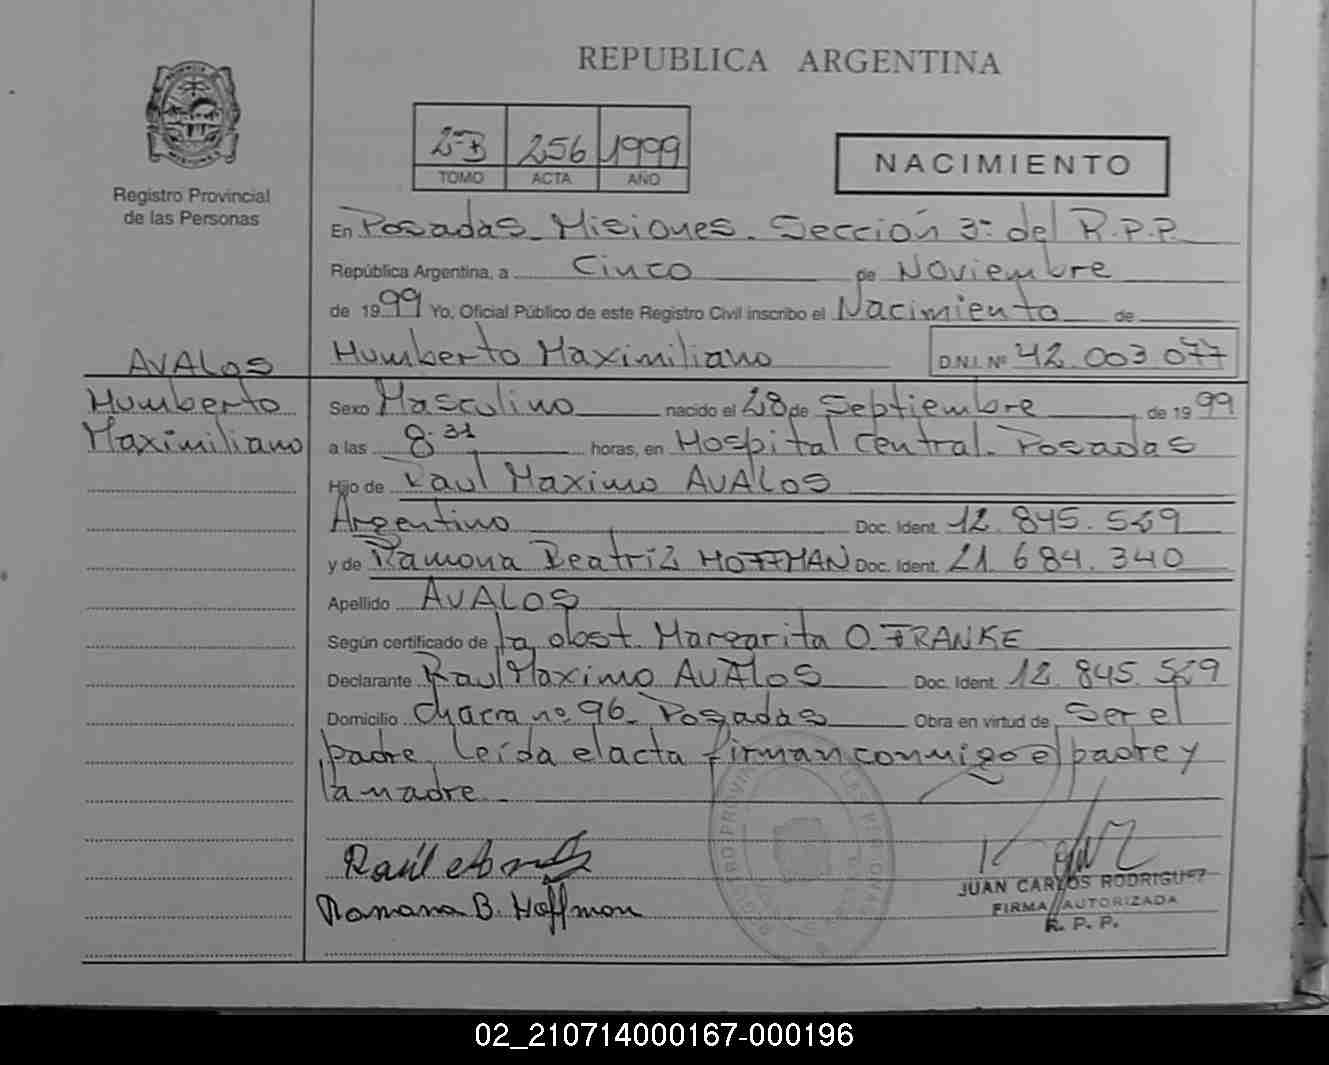 REPUBLICA ARGENTINA
Registro Provincial
de las Personas
2-B 256 1999
TOMO ACTA AÑO
NACIMIENTO
En Posadas Misiones. Sección 3ª del R.P.P.
República Argentina, a Cinco de Noviembre
de 1999 Yo, Oficial Público de este Registro Civil inscribo el Nacimiento de
AVALOS
Humberto Maximiliano D.N.I. Nº 42.003.077
Humberto
Maximiliano
Sexo Masculino nacido el 28 de Septiembre de 1999
a las 8:31 horas, en Hospital Central. Posadas
Hijo de Raul Maximo AVALOS
Argentino Doc. Ident. 12.845.569
y de Ramona Beatriz HOFFMAN Doc. Ident. 21.684.340
Apellido AVALOS
Según certificado de la obst. Margarita O. FRANKE
Declarante Raul Maximo AVALOS Doc. Ident. 12.845.569
Domicilio Chacra nº 96. Posadas Obra en virtud de Ser el
padre. Leída el acta firman conmigo el padre y
la madre.
Raúl
Ramona B. Hoffman
JUAN CARLOS RODRIGUEZ
FIRMA AUTORIZADA
R. P. P.
02_210714000167-000196